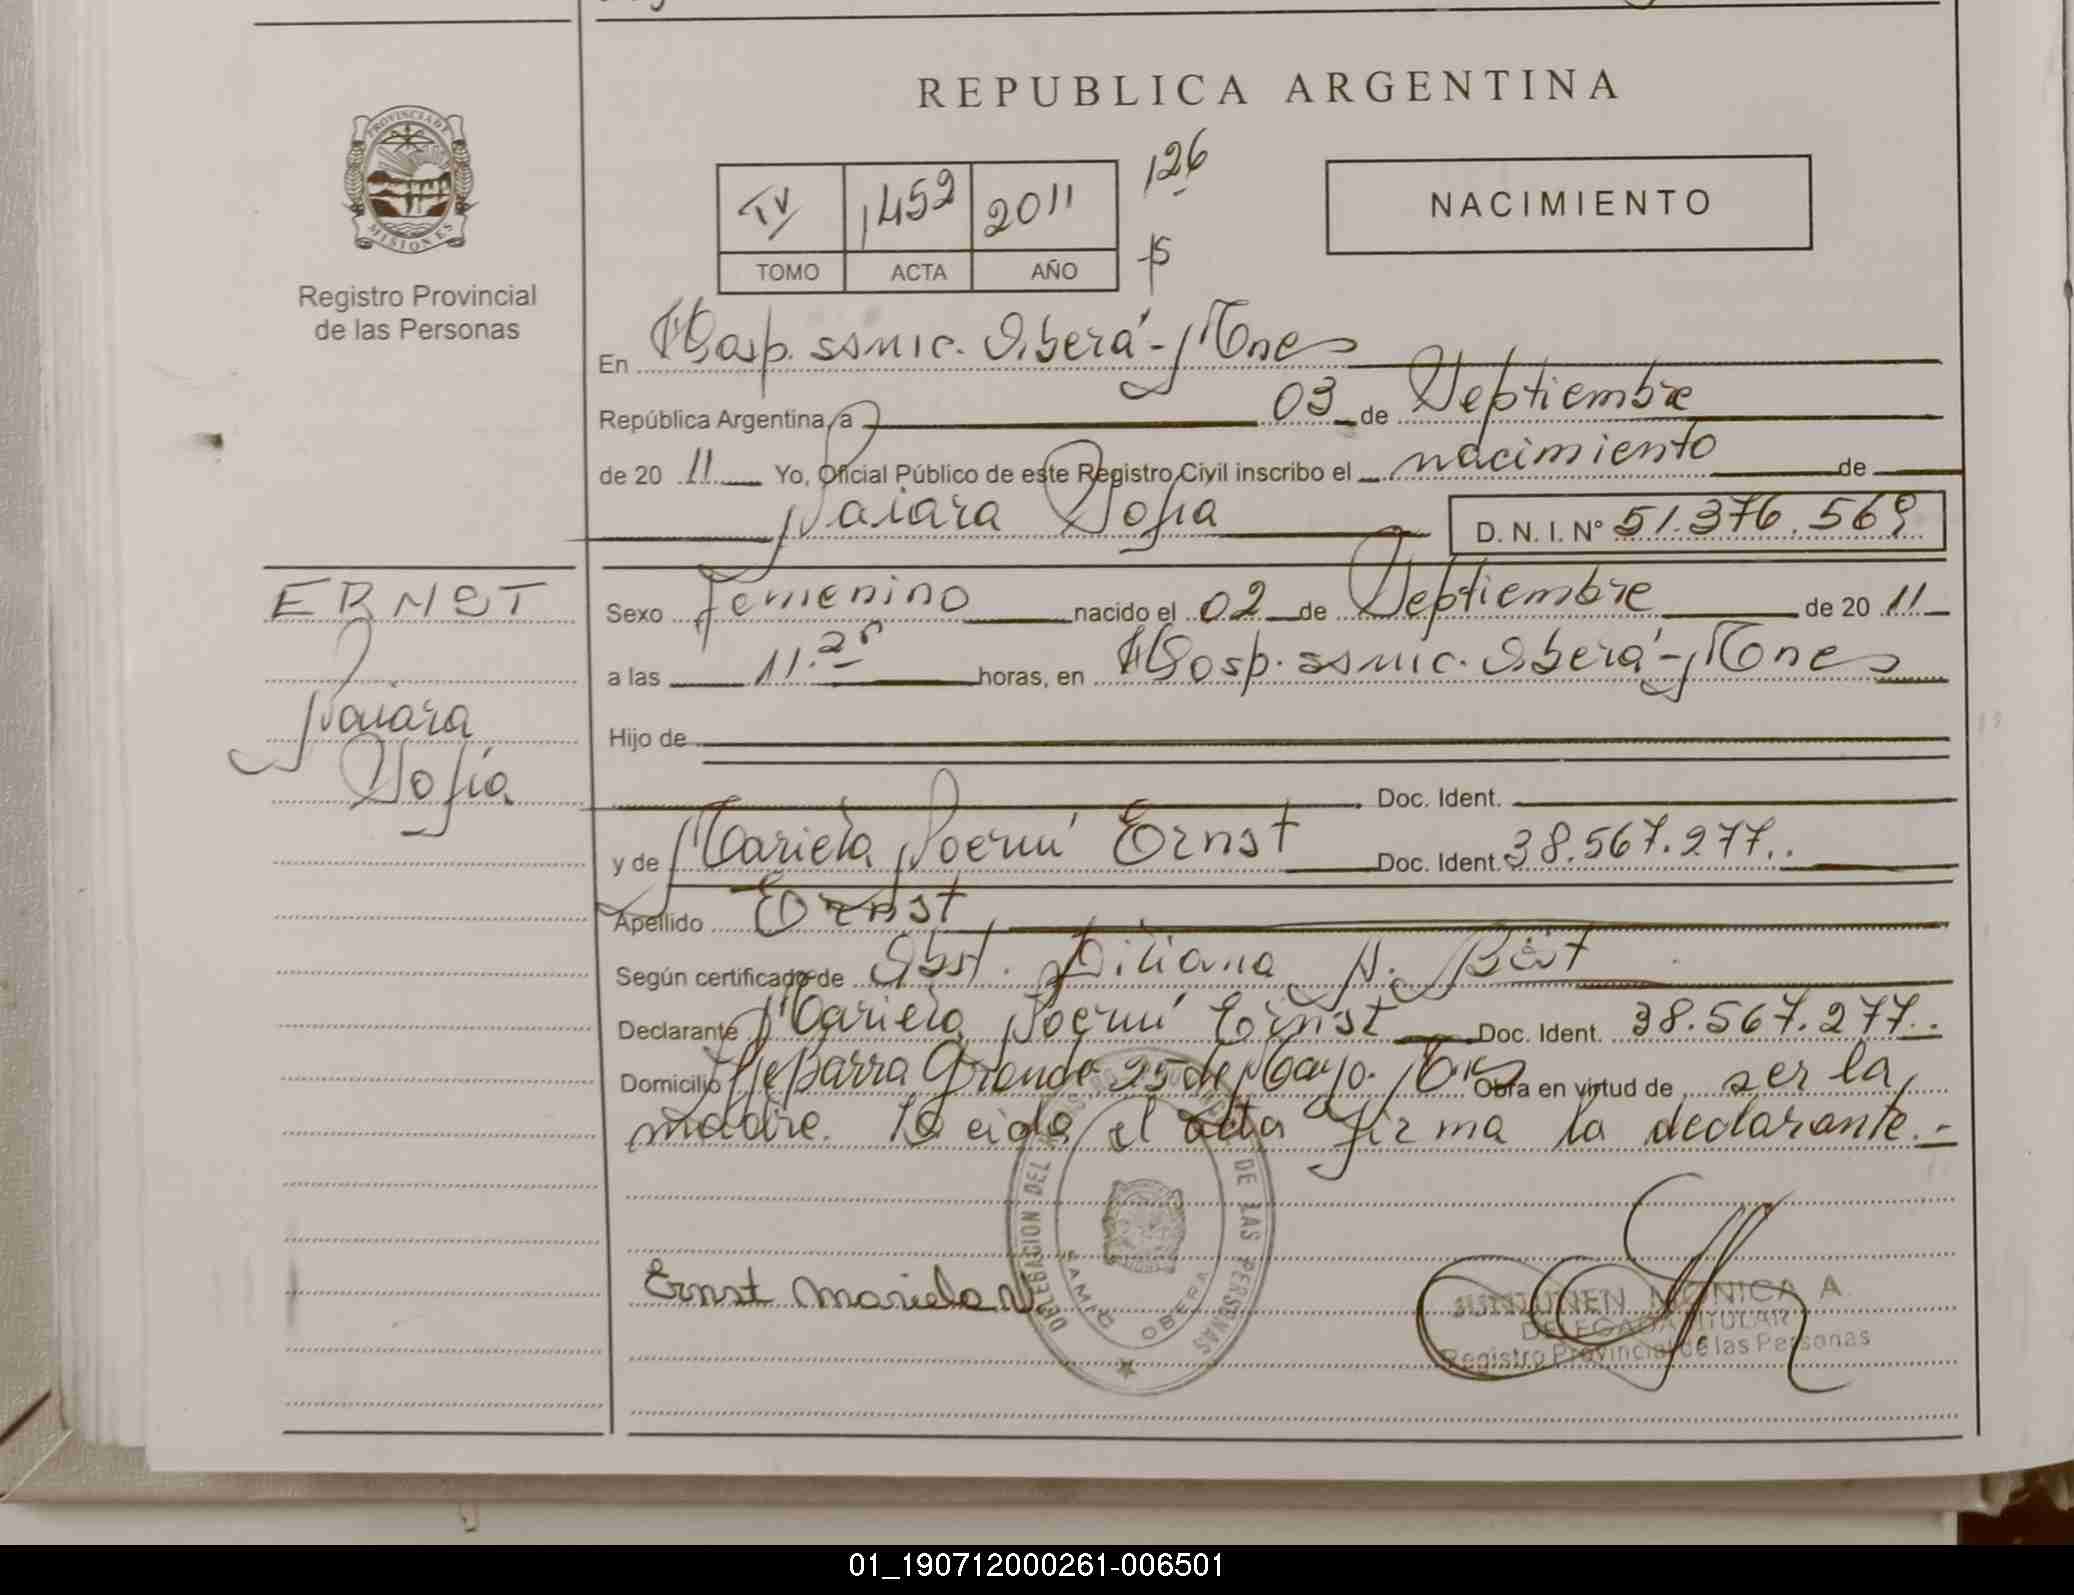 REPUBLICA ARGENTINA
PROVINCIA DE MISIONES
Registro Provincial
de las Personas
TV 1452 2011
TOMO ACTA AÑO
126
NACIMIENTO
En Hosp. SAMIC. Oberá - Mnes
República Argentina, a 03 de Septiembre
de 20 11 Yo, Oficial Público de este Registro Civil inscribo el nacimiento de
Naiara Sofia
D. N. I. Nº 51.376.569
ERNST
Naiara
Sofía
Sexo femenino nacido el 02 de Septiembre de 20 11
a las 11.25 horas, en Hosp. SAMIC. Oberá - Mnes
Hijo de
Doc. Ident.
y de Mariela Noemí Ernst Doc. Ident. 38.567.277..
Apellido Ernst
Según certificado de Obst. Liliana N.
Declarante Mariela Noemí Ernst Doc. Ident. 38.567.277..
Domicilio Grande 25 de Mayo. Mnes Obra en virtud de ser la
madre. Leida el acta firma la declarante.-
Ernst Mariela N
DELEGACION DEL DE LAS PERSONAS
SAMIC OBERA
MONICA A.
DELEGADA TITULAR
Registro Provincial de las Personas
01_190712000261-006501